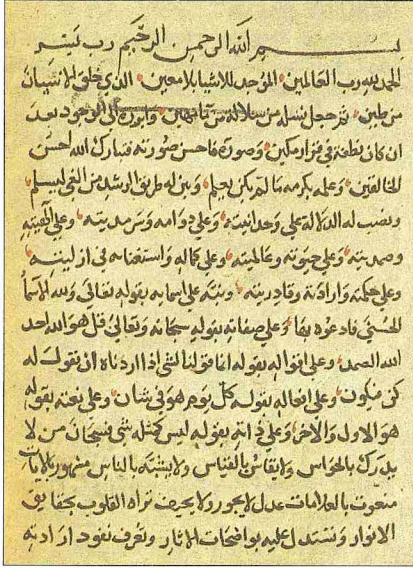 بسم الله الرحمن الرحيم رب يسر
الحمد لله رب العالمين الموجد للاشيا بلا معين الذي خلق الانسان
من طين ثم جعل نسله من سلالة من ماء مهين وابرزه الى الوجود بعد
ان كان نطفة في قرار مكين وصوره فاحسن صورته فتبارك الله احسن
الخالقين وعلمه بكرمه ما لم يكن يعلم وبين له طريق الرشد من الغي ليسلم
ونصب له الدلالة على وحدانيته وعلى دوامه وسرمديته وعلى الهيته
وصمديته وعلى حيوته وعالميته وعلى كماله واستغنايه في ازليته
وعلى حكمته وارادته وقادريته ونبه على اسمايه بقوله تعالى ولله الاسمآ
الحسنى فادعوه بها وعلى صفاته بقوله سبحانه وتعالى قل هو الله احد
الله الصمد وعلى اقواله بقوله انما قولنا لشي اذا اردناه ان نقول له
كن فيكون وعلى افعاله بقوله كل يوم هو في شان وعلى نعته بقوله
هو الاول والاخر وعلى ذاته بقوله ليس كمثله شي فسبحان من لا
يدرك بالحواس ولا يقاس بالقياس ولا يشبه بالناس مشهور بالايات
منعوت بالعلامات عدل لا يجور ولا يحيف تراه القلوب بحقايق
الانوار وتستدل عليه بواضحات الاثار وتعرف نفود ارادته